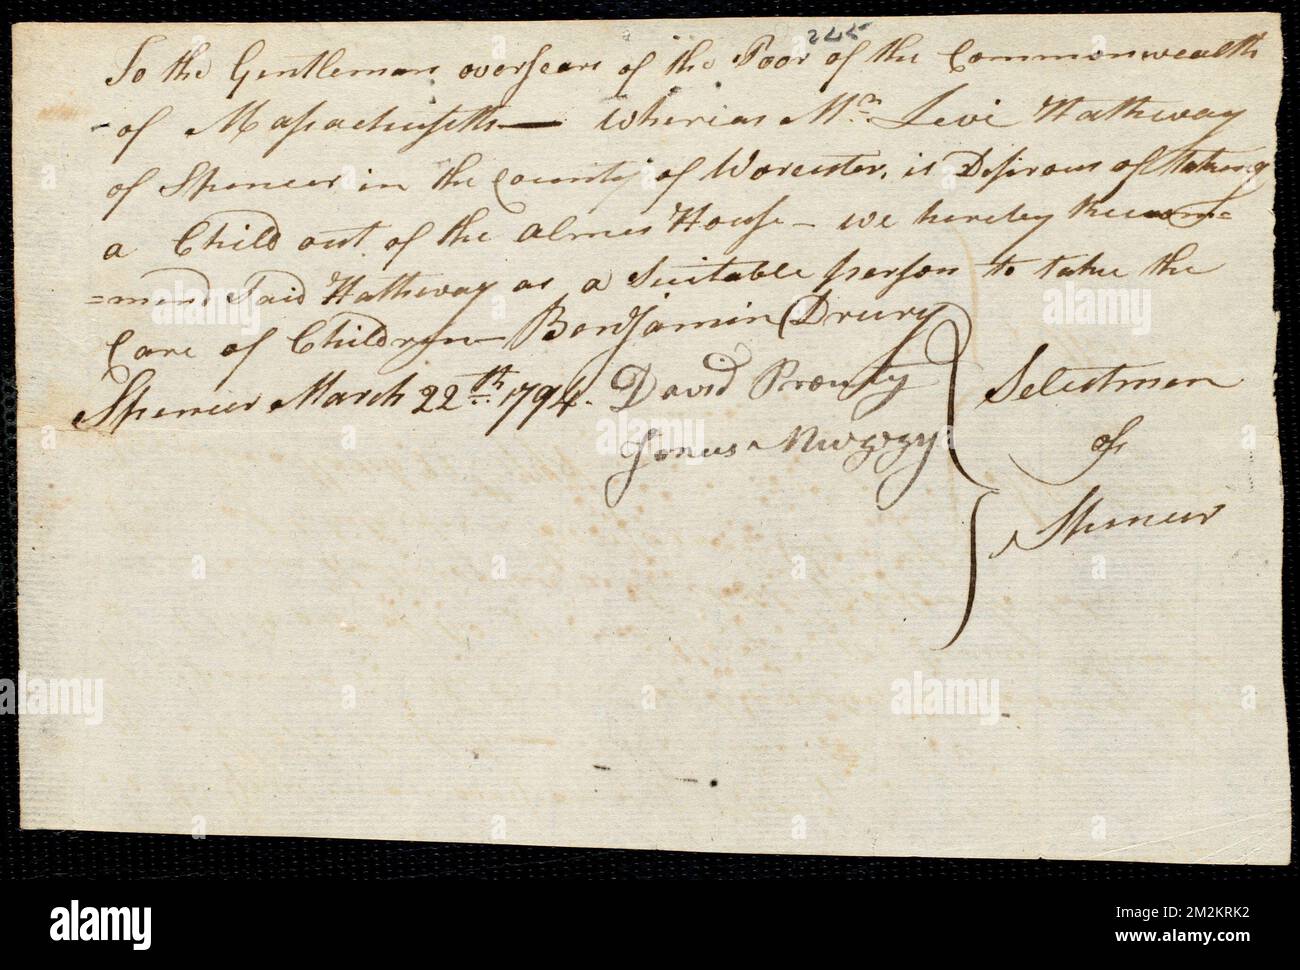 245
To the Gentleman oversears of the Poor of the Commonwealth
of Massachusetts — Wherias Mr. Levi Hathway
of Spencer in the County of Worcester, is Desirous of taking
a Child out of the Almes House — we hereby recom=
=mend Said Hathway as a Suitable person to take the
Care of Children — Benjamin Drury
Spencer March 22th. 1794. David Prouty Selectmen
Jonas of
Spencer
alamy
Image ID: 2M2KRK2
www.alamy.com